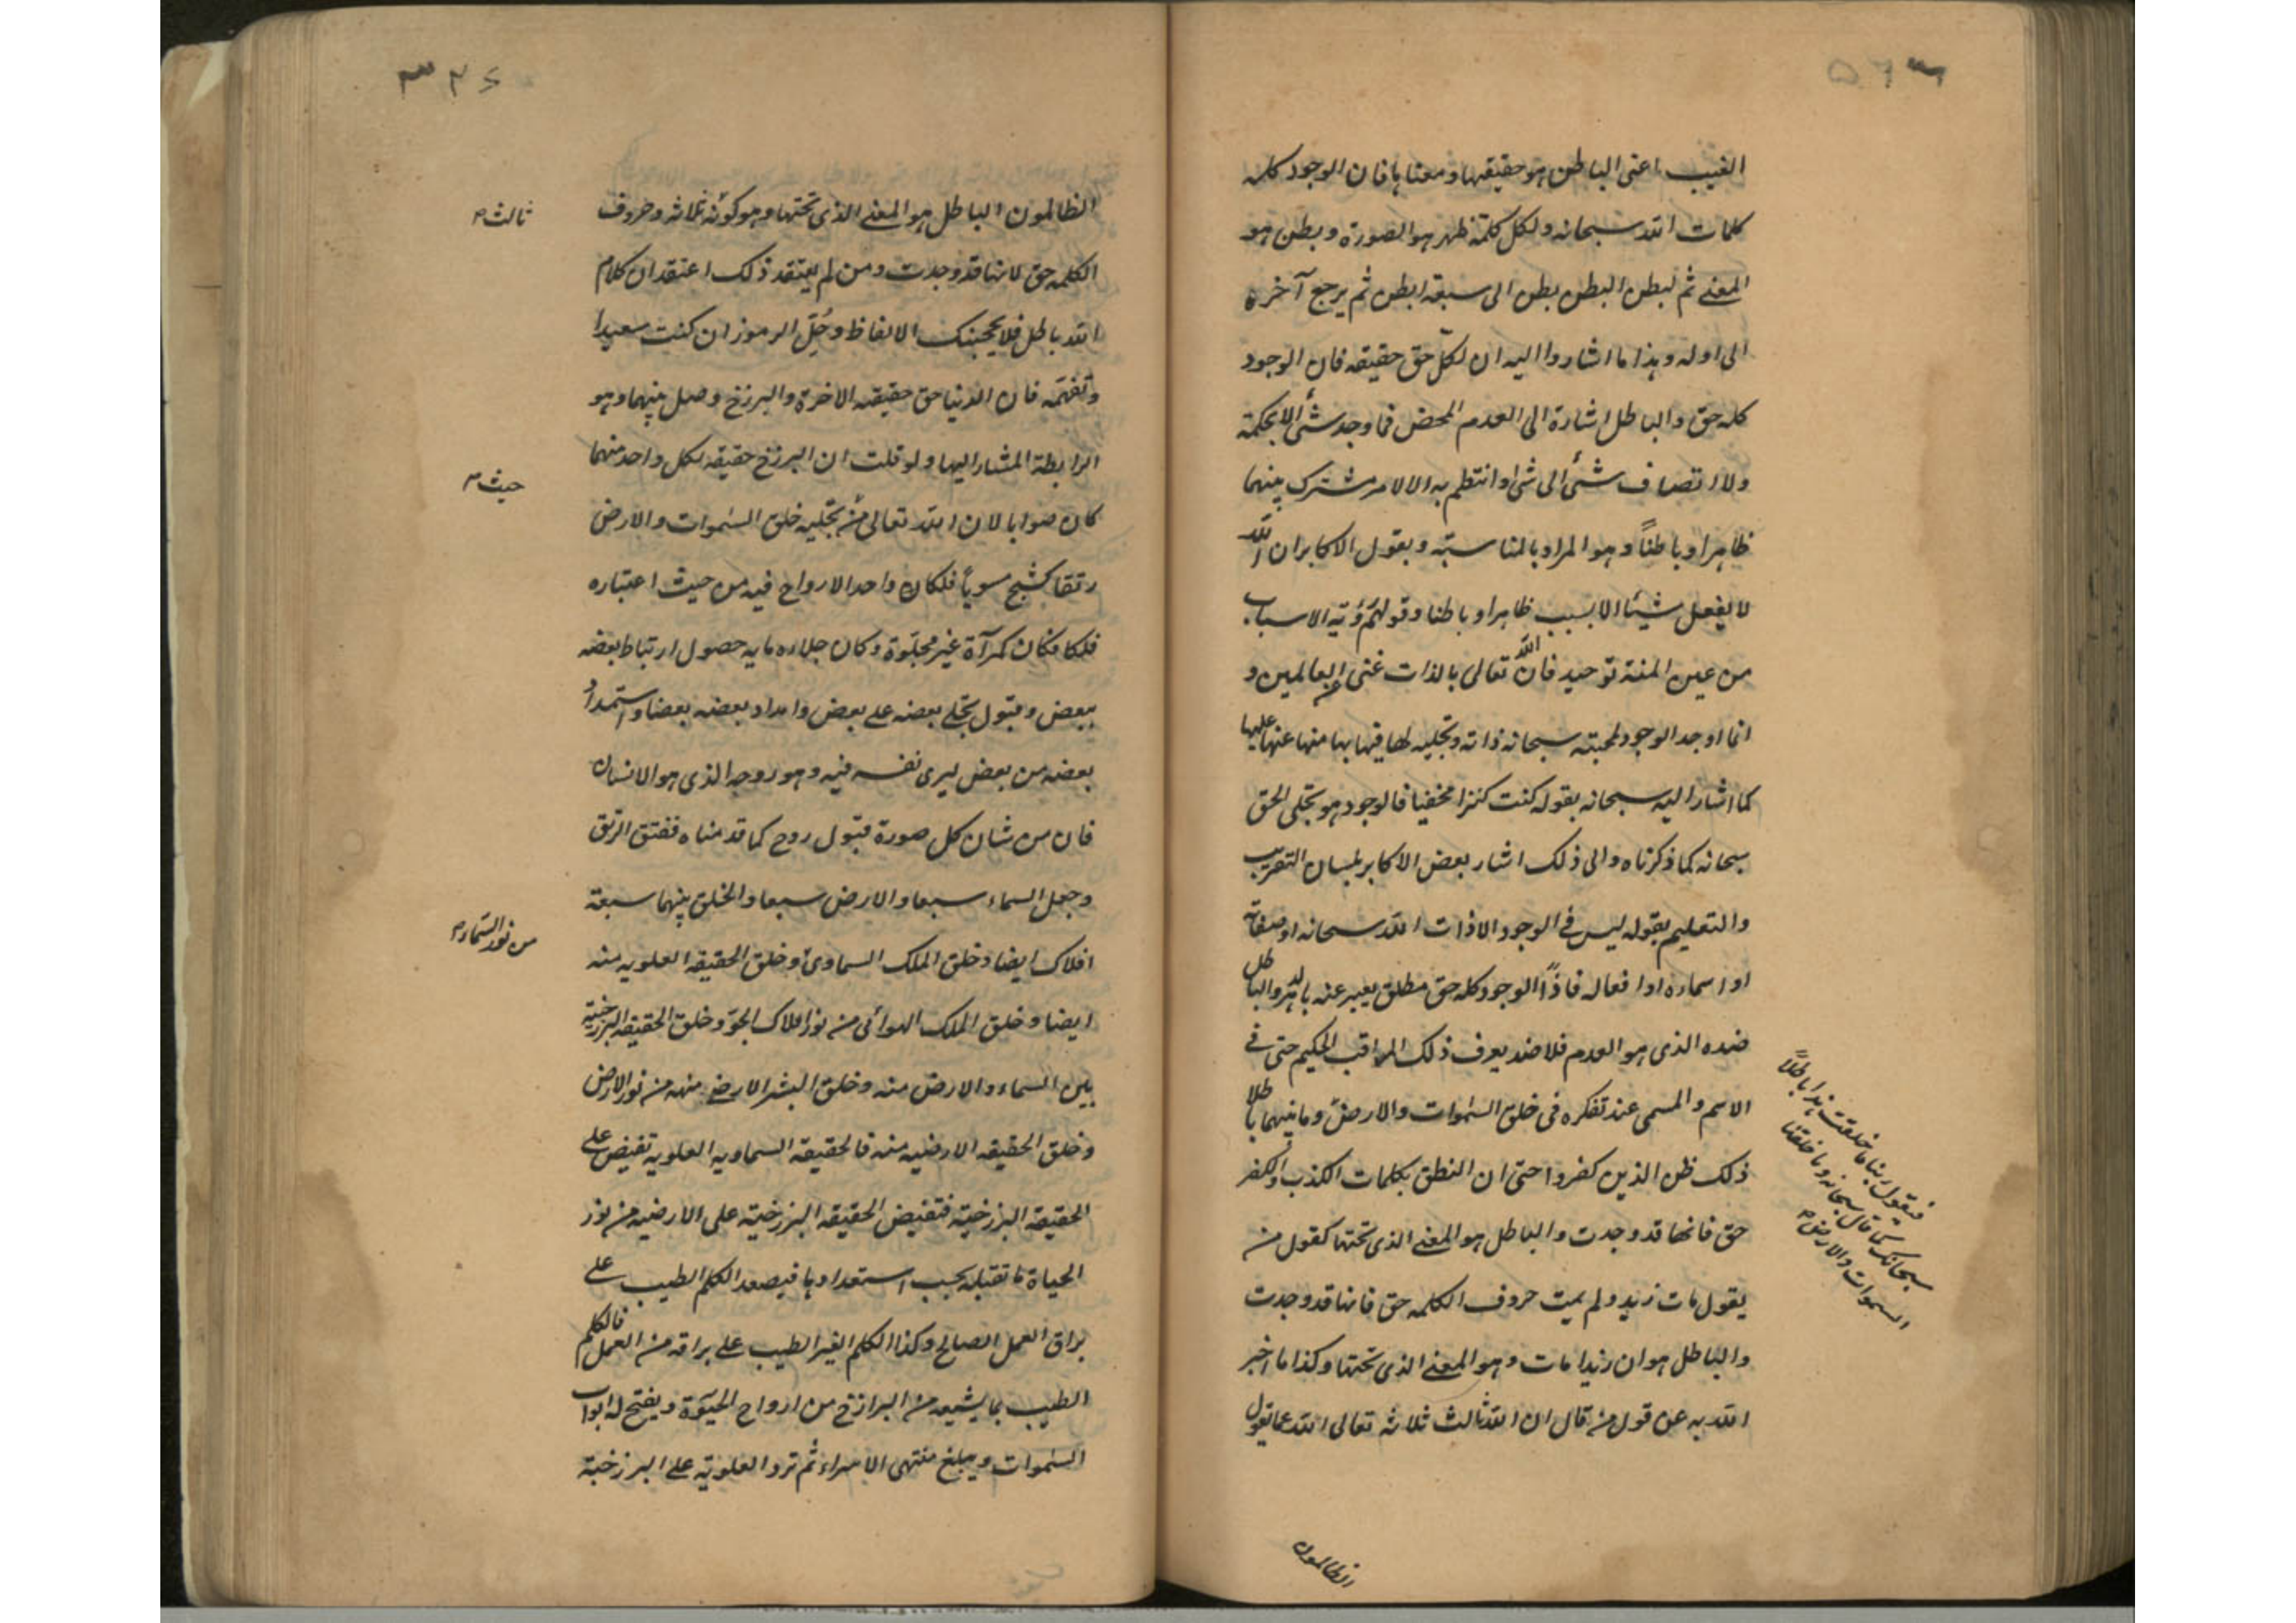 الغيب اعنى الباطن هو حقيقهتا و معناها فان الوجود كله
كلمات الله سبحانه ولكل كلمة ظهر هو الصورة و بطن هو
المعنى ثم لبطن البطن بطن الى سبعة ابطن ثم يرجع آخره
الى اوله و هذا ما اشاروا اليه ان لكلّ حق حقيقه فان الوجود
كله حق و الباطل اشارة الى العدم المحض فما وجد شئ الا بحكمة
ولا تصاف شئ الى شئ او انتظم به الا لامر مشترك بينهما
ظاهرا و باطناً و هو المراد بالمناسبة و بقول الاكابر ان الله
لا يفعل شيئا الا بسبب ظاهرا و باطنا و قولهم رؤية الاسباب
من عين المنة توحيد فان الله تعالى بالذات غنى عن العالمين و
انما اوجد الوجود لمحبته سبحانه ذاته و تجليه لها فيها بها منها عنها عليها
كما اشار اليه سبحانه بقوله كنت كنزا مخفيا فالوجود هو تجلى الحق
سبحانه كما ذكرناه و الى ذلك اشار بعض الاكابر بلسان التقريب
و التعليم بقوله ليس فى الوجود الا ذات الله سبحانه او صفاته
او اسماءه او افعاله فاذاً الوجود كله حق مطلق يعبر عنه بالله و الباطل
ضده الذى هو العدم فلا ضد يعرف ذلك المراقب الحكيم حتى فى
الاسم و المسمى عند تفكره فى خلق السموات و الارض و ما بينهما باطلا
ذلك ظن الذين كفروا حتى ان النطق بكلمات الكذب و الكفر
حق فانها قد وجدت و الباطل هو المعنى الذى تحتها كقول من
يقول مات زيد و لم يمت حروف الكلمه حق فانها قد وجدت
و الباطل هو ان زيدا مات و هو المعنى الذى تحتها و كذا ما اخبر
الله به عن قول من قال ان الله ثالث ثلاثه تعالى الله عما يقول
فيقول ربنا ما خلقت هذا باطلاً
سبحانك كما قال سبحانه و ما خلقنا
السموات و الارض
الظالمون
الظالمون الباطل هو المعنى الذى تحتها و هو كونه ثلاثه و حروف
ثالث
الكلمه حق لانها قد وجدت و من لم يعتقد ذلك اعتقد ان كلام
الله باطل فلا يحجبنك الالفاظ و حُلّ الرموز ان كنت سعيدا
و تفهّمه فان الدنيا حق حقيقه الاخرة و البرزخ وصل بينهما و هو
الرابطة المشار اليها و لو قلت ان البرزخ حقيقه لكل واحد منهما
حيث
كان صوابا لان الله تعالى من تجليه خلق السموات و الارض
رتقا كشبح مسوياً فلكان واحد الارواح فيه من حيث اعتباره
فلكا فكان كمرآة غير مجلوّة و كان جلاءه ما به حصول ارتباط بعضه
ببعض و قبول تجلى بعضه على بعض و امداد بعضه بعضا و استمداد
بعضه من بعض ليرى نفسه فيه و هو روحه الذى هو الانسان
فان من شان كل صورة قبول روح كما قدمناه ففتق الرتق
و جعل السماء سبعا و الارض سبعا و الخلق بينهما سبعة
من نور السّماء
افلاك ايضا و خلق الملك السماوى و خلق الحقيقه العلويه منه
ايضا و خلق الملك الهوائى من نور افلاك الجوّ و خلق الحقيقه البرزخية
بين السماء و الارض منه و خلق البشر الارضى منه من نور الارض
و خلق الحقيقه الارضيه منه فالحقيقة السماويه العلوية تفيض على
الحقيقة البرزخية فتفيض الحقيقه البرزخية على الارضيه من نور
الحياة ما تقبله بحسب استعدادها فيصعد الكلم الطيب على
براق العمل الصالح و كذا الكلم الغير الطيب على براقه من العمل فالكلم
الطيب بما يشيعه من البرازخ من ارواح الحيوة و يفتح له ابواب
السموات و يبلغ منتهى الاسراء ثم ترد العلوية على البرزخية